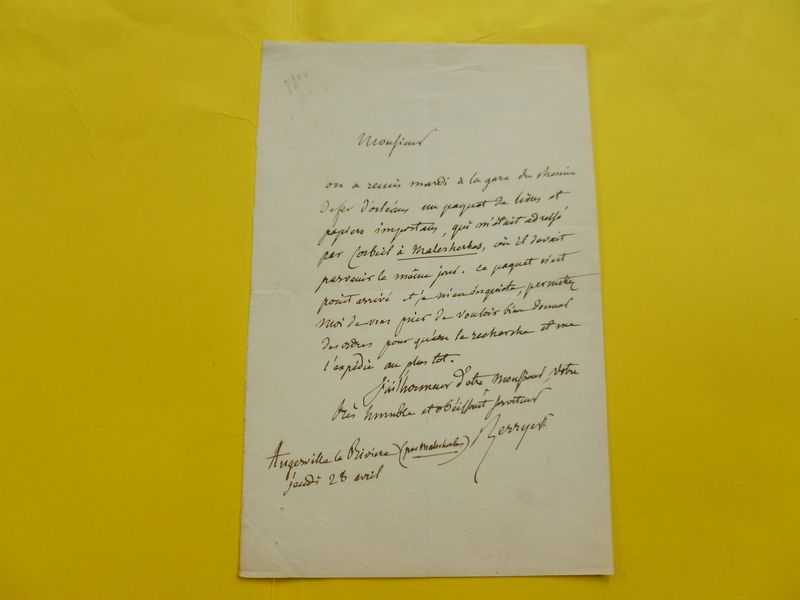 Monsieur
on a remis mardi à la gare du chemin
de fer d'orléans un paquet de livres et
papiers importans, qui m'était adressé
par Corbeil à Malesherbes, où il devait
parvenir le même jour. ce paquet n'est
point arrivé et je m'en inquiète, permettez
moi de vous prier de vouloir bien donner
des ordres pour qu'on le recherche et me
l'expédie au plus tot.
j'ai l'honneur d'être Monsieur, votre
très humble et obéissant serviteur
Berryer
Augerville la Rivière (par Malesherbes)
jeudi 28 avril